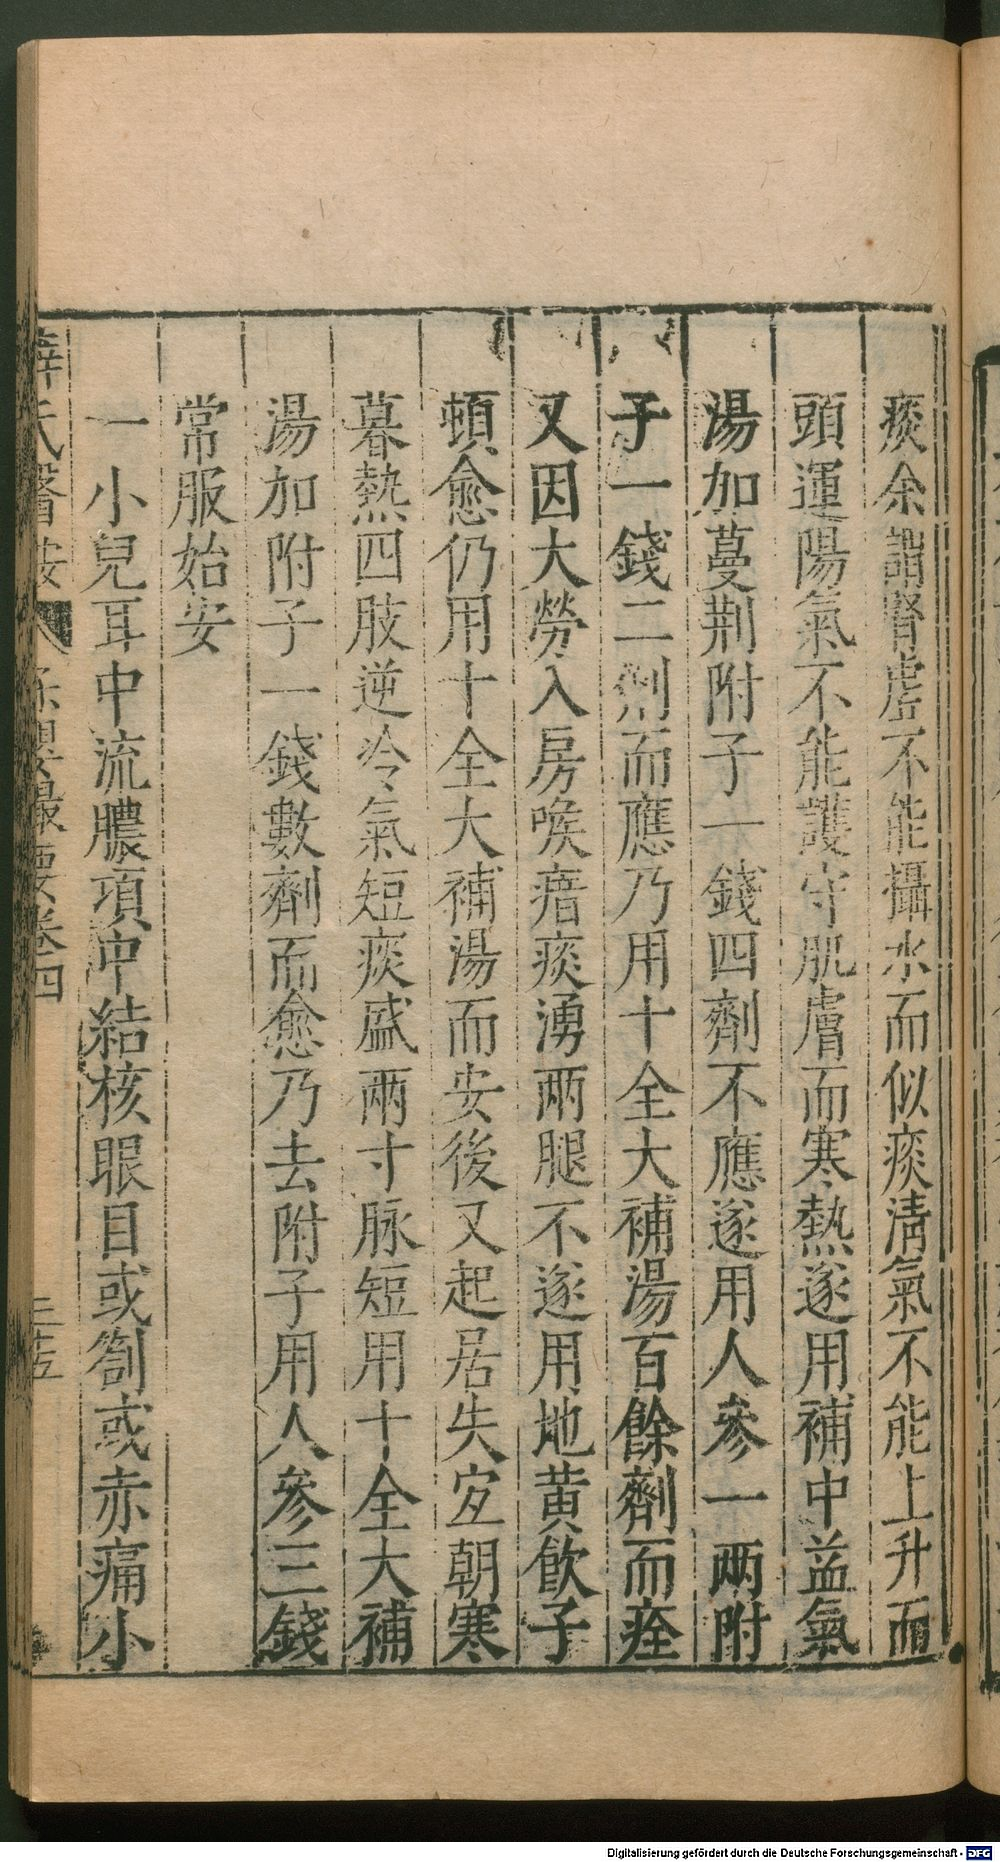 痰余謂腎虛不能攝水而似痰淸氣不能上升而
頭運陽氣不能護守肌膚而寒熱遂用補中益氣
湯加蔓荆附子一錢四劑不應遂用人參一两附
子一錢二劑而應乃用十全大補湯百餘劑而痊
又因大勞入房喉瘖痰湧兩腿不遂用地黃飮子
頓愈仍用十全大補湯而安後又起居失宜朝寒
暮熱四肢逆冷氣短痰盛兩寸脉短用十全大補
湯加附子一錢數劑而愈乃去附子用人參三錢
常服始安
一小兒耳中流膿項中結核眼目或劄或赤痛小
薛氏醫按 保嬰撮要卷四 三十五
Digitalisierung gefördert durch die Deutsche Forschungsgemeinschaft - DFG